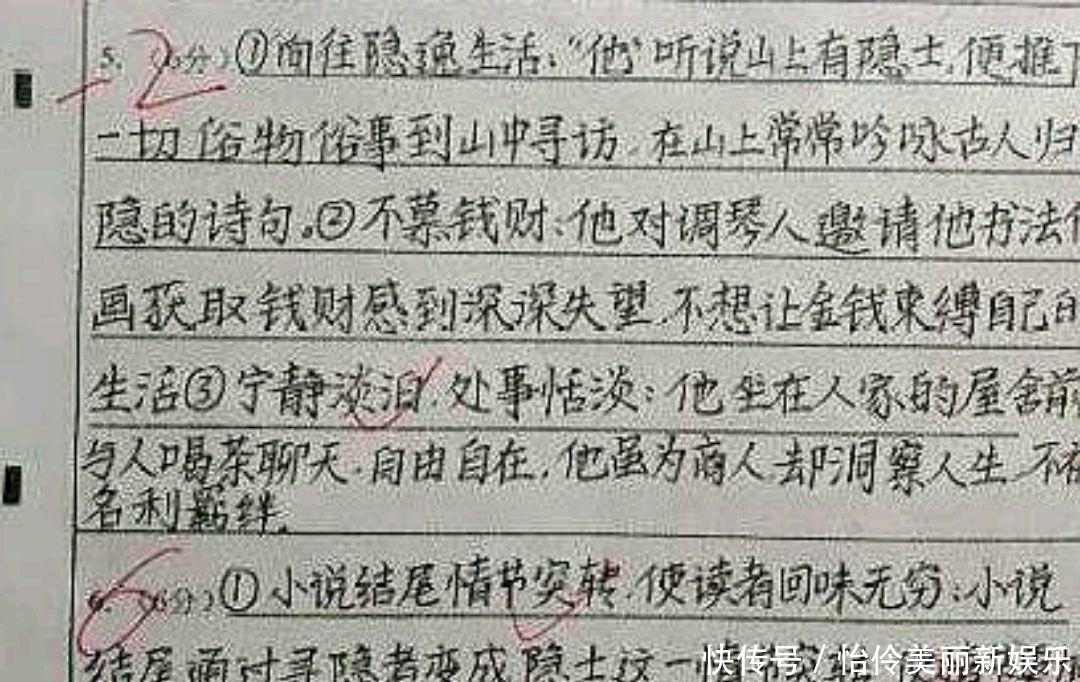 5. (6分)①向往隐逸生活:“他”听说山上有隐士,便推
一切俗物俗事到山中寻访,在山上常常吟咏古人归
隐的诗句。②不慕钱财:他对调琴人邀请他书法
画获取钱财感到深深失望,不想让金钱束缚自己的
生活③宁静淡泊,处事恬淡:他坐在人家的屋舍前
与人喝茶聊天,自由自在,他虽为商人却洞察人生,不
名利羁绊。
-2
6. (6分)①小说结尾情节突转,使读者回味无穷:小说
结尾通过寻隐者变成隐士这一
6
快传号/怡伶美丽新娱乐